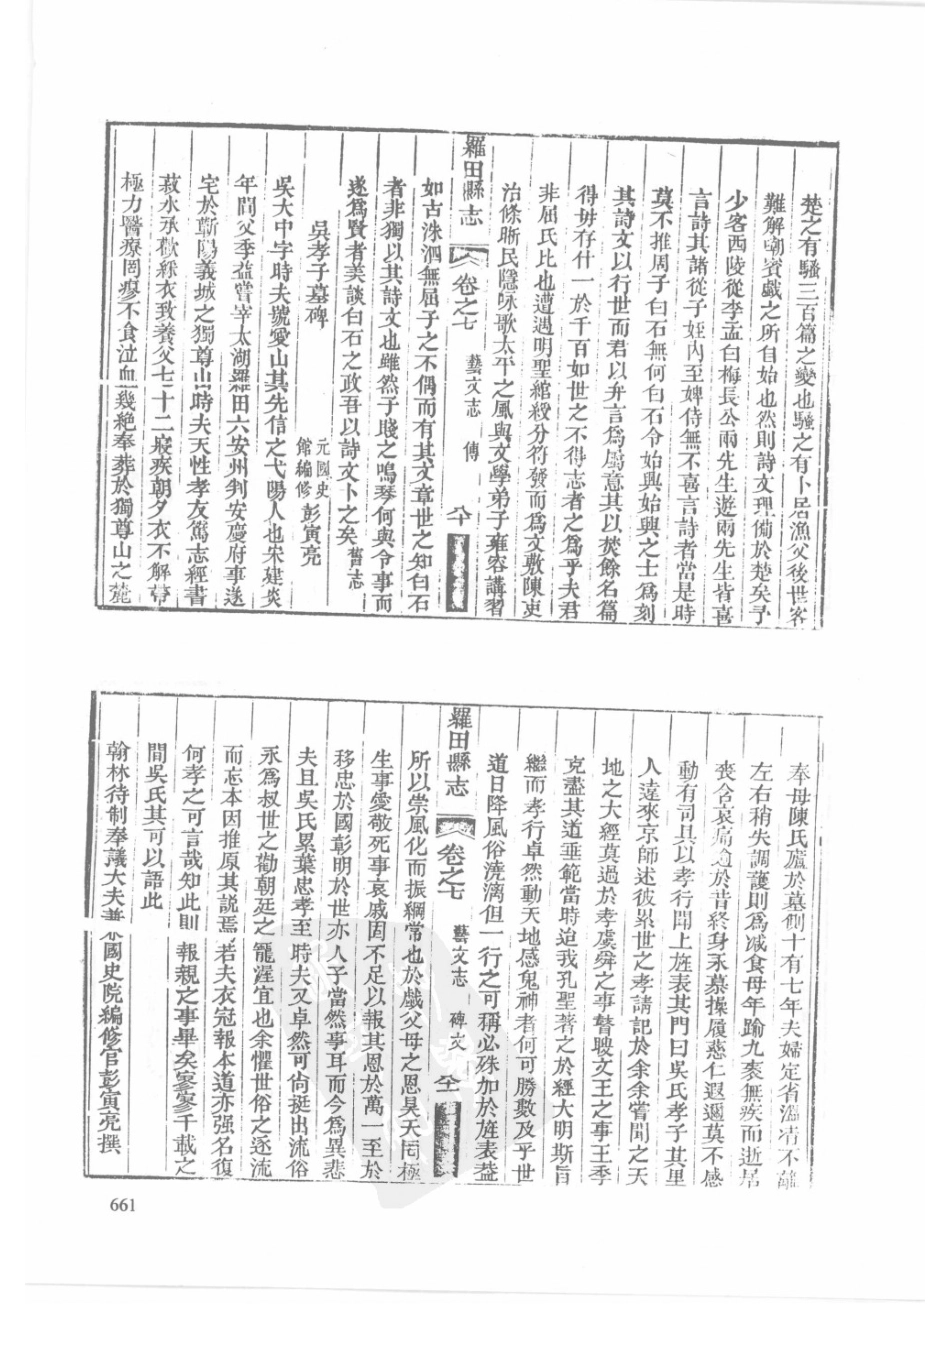 楚之有騷三百篇之變也騷之有卜居漁父後世客
難解嘲賓戲之所自始也然則詩文理備於楚矣予
少客西陵從李孟白梅長公兩先生遊兩先生皆喜
言詩其諸從子姪內至婢侍無不喜言詩者當是時
莫不推周子白石無何白石令始興始興之士為刻
其詩文以行世而君以弁言為屬意其以焚餘名篇
得毋存什一於千百如世之不得志者之為乎夫君
非屈氏比也遭遇明聖綰綬分符發而為文敷陳吏
治條晰民隱咏歌太平之風與文學弟子雍容講習
羅田縣志
卷之七
藝文志 傳
八十
如古洙泗無屈子之不偶而有其文章世之知白石
者非獨以其詩文也雖然子賤之鳴琴何與令事而
遂為賢者美談白石之政吾以詩文卜之矣舊志
吳孝子墓碑
元國史
館編修
彭寅亮
吳大中字時夫號愛山其先信之弋陽人也宋建炎
年間父季益嘗宰太湖羅田六安州判安慶府事遂
宅於蘄陽義城之獨尊山時夫天性孝友篤志經書
菽水承歡綵衣致養父七十二寢疾朝夕衣不解帶
極力醫療罔瘳不食泣血幾絶奉葬於獨尊山之麓
奉母陳氏廬於墓側十有七年夫婦定省溫凊不離
左右稍失調護則為减食母年踰九袠無疾而逝居
喪含哀痛逾於昔終身永慕操履慈仁遐邇莫不感
動有司具以孝行聞上旌表其門曰吳氏孝子其里
人達來京師述彼累世之孝請記於余余嘗聞之天
地之大經莫過於孝虞舜之事瞽瞍文王之事王季
克盡其道垂範當時迨我孔聖著之於經大明斯旨
繼而孝行卓然動天地感鬼神者何可勝數及乎世
道日降風俗澆漓但一行之可稱必殊加於旌表葢
羅田縣志
卷之七
藝文志 碑文
所以崇風化而振綱常也於戲父母之恩昊天罔極
生事愛敬死事哀戚固不足以報其恩於萬一至於
移忠於國彰明於世亦人子當然事耳而今為異悲
夫且吳氏累葉忠孝至時夫又卓然可尙挺出流俗
永為叔世之勸朝廷之寵渥宜也余懼世俗之逐流
而忘本因推原其說焉若夫衣冠報本道亦强名復
何孝之可言哉知此則報親之事畢矣寥寥千載之
間吳氏其可以語此
翰林待制奉議大夫兼國史院編修官彭寅亮撰
661